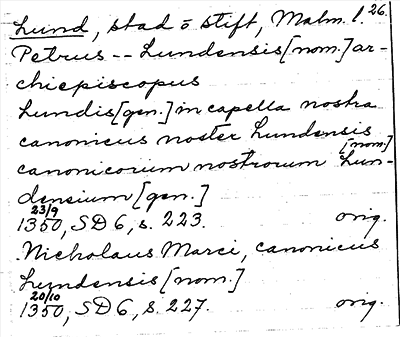 Lund, stad o stift, Malm. l. 26.
Petrus -- Lundensis [nom.] ar-
chiepiscopus
Lundis [gen.] in capella nostra
canonicus noster Lundensis [nom.]
canonicorum nostrorum Lun-
densium [gen.]
23/9 1350, SD 6, s. 223. orig.
Nicholaus Marci, canonicus
Lundensis [nom.]
20/10 1350, SD 6, s. 227. orig.